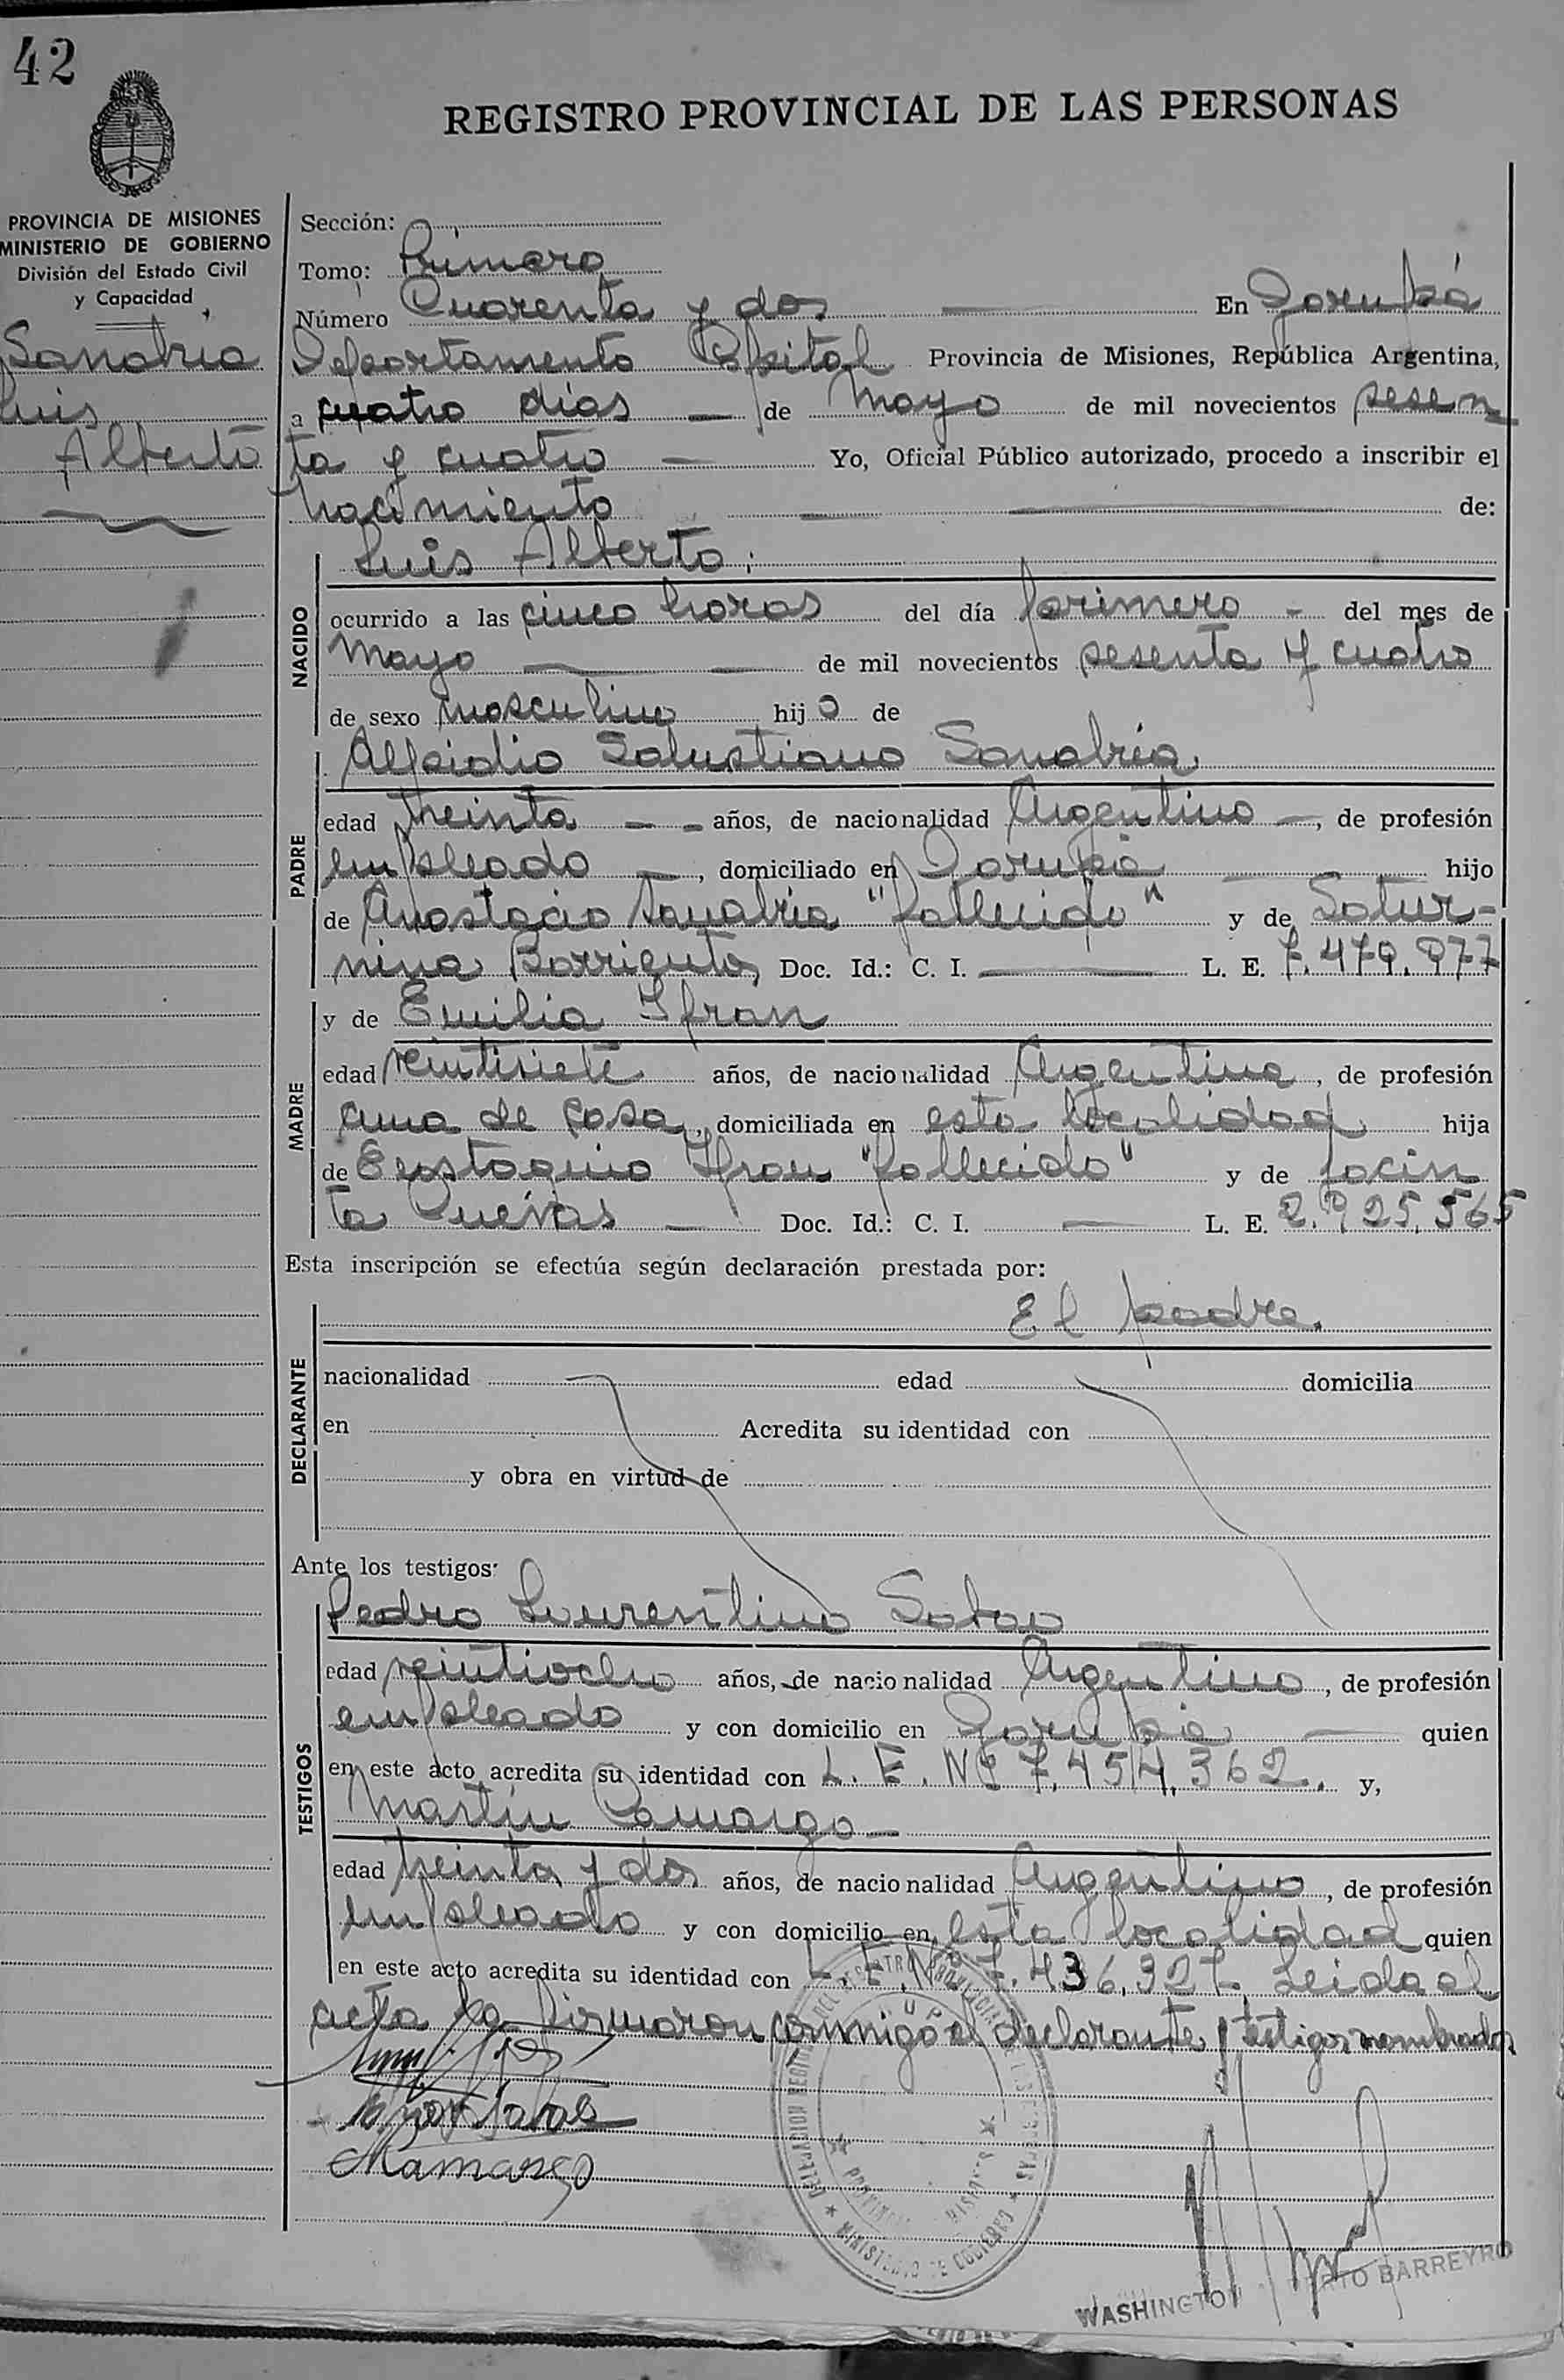 42
REGISTRO PROVINCIAL DE LAS PERSONAS
PROVINCIA DE MISIONES
MINISTERIO DE GOBIERNO
División del Estado Civil
y Capacidad
Sanabria
Luis
Alberto
Sección:
Tomo: Primero
Número Cuarenta y dos En Garupá
Departamento Capital Provincia de Misiones, República Argentina,
a cuatro días de Mayo de mil novecientos sesen
ta y cuatro Yo, Oficial Público autorizado, procedo a inscribir el
nacimiento de:
NACIDO
Luis Alberto:
ocurrido a las cinco horas del día primero del mes de
Mayo de mil novecientos sesenta y cuatro
de sexo masculino hijo de
PADRE
Alpidio Salustiano Sanabria
edad treinta años, de nacionalidad Argentino, de profesión
empleado, domiciliado en Garupá hijo
de Anastacio Sanabria "fallecido" y de Satur-
nina Barrientos, Doc. Id.: C. I. L. E. 7.479.977
MADRE
y de Emilia Ifran
edad veintisiete años, de nacionalidad Argentina, de profesión
ama de casa, domiciliada en esta localidad hija
de Eustaquio Ifran "fallecido" y de Jacin
ta Cuevas Doc. Id.: C. I. L. E. 2.925.565
Esta inscripción se efectúa según declaración prestada por:
DECLARANTE
El padre.
nacionalidad edad domicilia
en Acredita su identidad con
y obra en virtud de
Ante los testigos:
TESTIGOS
Pedro Laurentino
edad veintiocho años, de nacionalidad Argentino, de profesión
empleado y con domicilio en Garupá quien
en este acto acredita su identidad con L. E. Nº 7.454.362. y,
Martín Camargo
edad treinta y dos años, de nacionalidad Argentino, de profesión
empleado y con domicilio en esta localidad quien
en este acto acredita su identidad con L. E. Nº 7.436.327. Leida el
acta la firmaron conmigo el declarante y testigos nombrados
MCamargo
MINISTERIO DE GOBIERNO
WASHINGTON BARREYRO